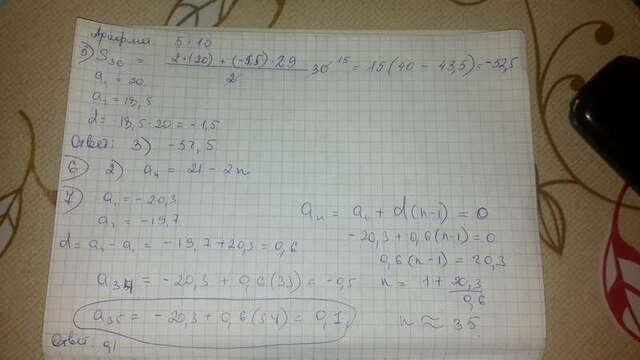 Арифм 5-10
5) S₃₀ = (2·(20) + (-1,5)·29)/2 · 30 ¹⁵ = 15(40 - 43,5) = -52,5
a₁ = 20
a₂ = 18,5
d = 18,5-20 = -1,5
Ответ: 3) -52,5
6) 2) aₙ = 21 - 2n
7) a₁ = -20,3
a₂ = -19,7
d = a₂ - a₁ = -19,7 + 20,3 = 0,6
a₃₄ = -20,3 + 0,6(33) = -0,5
a₃₅ = -20,3 + 0,6(34) = 0,1
Ответ: 0,1
aₙ = a₁ + d(n-1) = 0
-20,3 + 0,6(n-1) = 0
0,6(n-1) = 20,3
n = 1 + 20,3/0,6
n ≈ 35